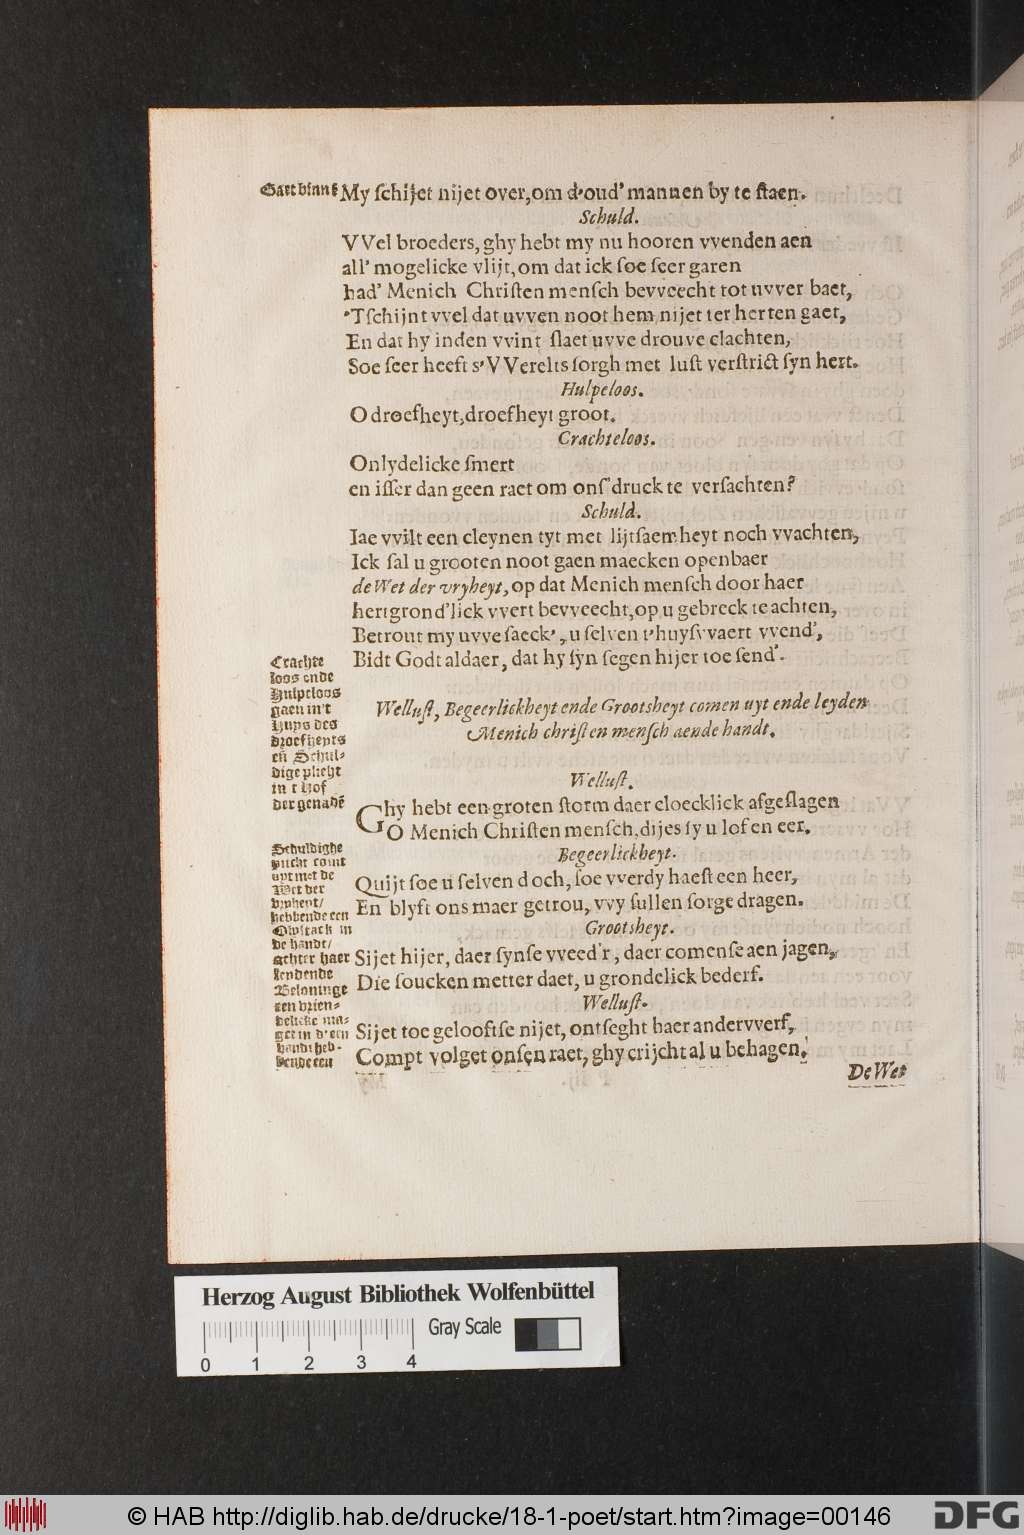 Gaet binnẽ
My ſchijet nijet over, om d'oud' mannen by te ſtaen.
Schuld.
VVel broeders, ghy hebt my nu hooren vvenden aen
all' mogelicke vlijt, om dat ick ſoe ſeer garen
had' Menich Chriſten menſch bevveecht tot uvver baet,
'Tſchijnt vvel dat uvven noot hem nijet ter herten gaet,
En dat hy inden vvint ſlaet uvve drouve clachten,
Soe ſeer heeft s'VVerelts ſorgh met luſt verſtrict ſyn hert.
Hulpeloos.
O droefheyt, droefheyt groot.
Crachteloos.
Onlydelicke ſmert
en iſſer dan geen raet om onſ' druck te verſachten?
Schuld.
Iae vvilt een cleynen tyt met lijtſaemheyt noch vvachten,
Ick ſal u grooten noot gaen maecken openbaer
de Wet der vryheyt, op dat Menich menſch door haer
hertgrond'lick vvert bevveecht, op u gebreck te achten,
Betrout my uvve ſaeck', u ſelven t'huyſvvaert vvend',
Bidt Godt aldaer, dat hy ſyn ſegen hijer toe ſend'.
Crachte
loos ende
Hulpeloos
gaen in't
Huys des
droefheyts
eñ Schul-
dige plicht
in t Hof
der genadẽ
Welluſt, Begeerlickheyt ende Grootsheyt comen uyt ende leyden
Menich chriſten menſch aende handt.
Welluſt.
Ghy hebt een groten ſtorm daer cloecklick afgeſlagen
O Menich Chriſten menſch, dijes ſy u lof en eer.
Begeerlickheyt.
Quijt ſoe u ſelven doch, ſoe vverdy haeſt een heer,
En blyft ons maer getrou, vvy ſullen ſorge dragen.
Grootsheyt.
Sijet hijer, daer ſynſe vveed'r, daer comenſe aen jagen,
Die ſoucken metter daet, u grondelick bederf.
Welluſt.
Sijet toe gelooftſe nijet, ontſeght haer andervverf,
Compt volget onſen raet, ghy crijcht al u behagen.
Schuldighe
plicht comt
uyt met de
Wet der
vryheyt/
hebbende een
Olyftack in
de handt/
achter haer
leydende
Beloninge
een vrien-
delicke ma-
get in d'een
handt heb-
bende een
De Wet
Herzog August Bibliothek Wolfenbüttel
Gray Scale
0 1 2 3 4
© HAB http://diglib.hab.de/drucke/18-1-poet/start.htm?image=00146
DFG